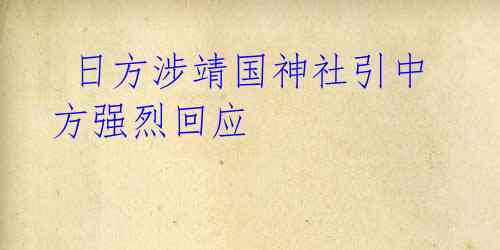 日方涉靖国神社引中
方强烈回应